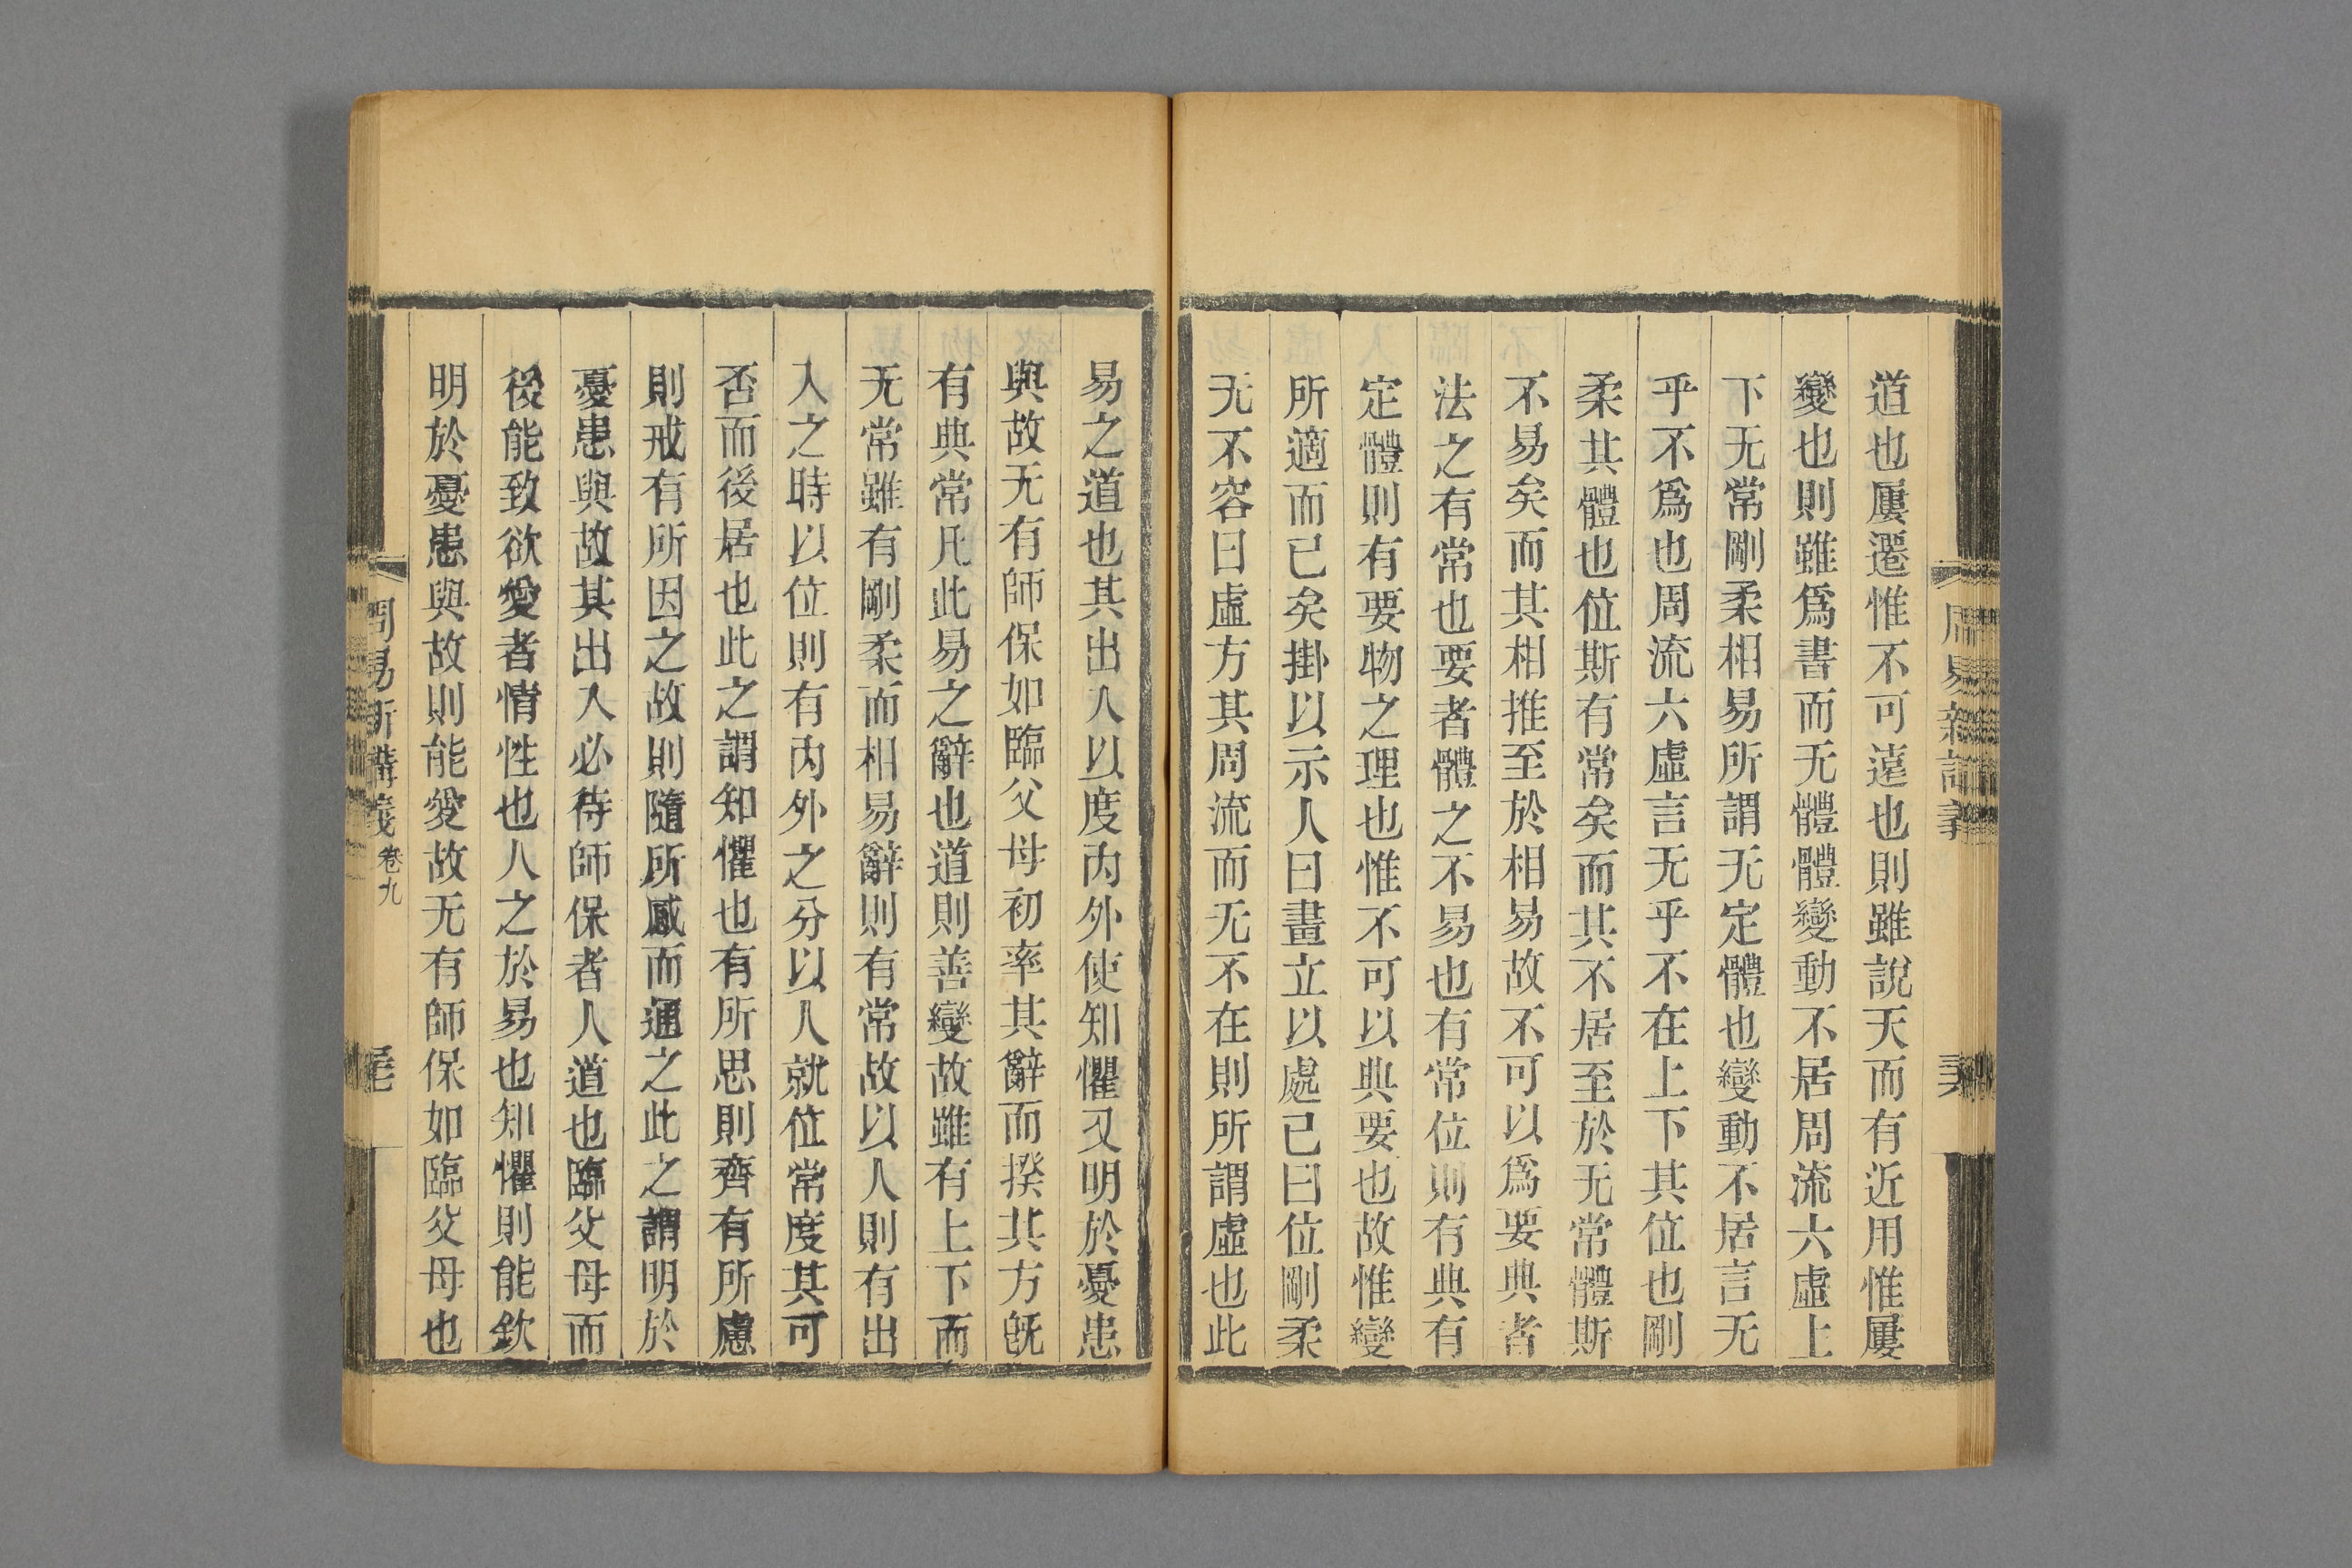 道也屢遷惟不可遠也則雖說天而有近用惟屢
變也則雖爲書而无體體變動不居周流六虛上
下无常剛柔相易所謂无定體也變動不居言无
乎不爲也周流六虛言无乎不在上下其位也剛
柔其體也位斯有常矣而其不居至於无常體斯
不易矣而其相推至於相易故不可以爲要典者
法之有常也要者體之不易也有常位則有典有
定體則有要物之理也惟不可以典要也故惟變
所適而已矣掛以示人曰畫立以處己曰位剛柔
无不容曰虛方其周流而无不在則所謂虛也此
易之道也其出入以度內外使知懼又明於憂患
與故无有師保如臨父母初率其辭而揆其方旣
有典常凡此易之辭也道則善變故雖有上下而
无常雖有剛柔而相易辭則有常故以人則有出
入之時以位則有內外之分以人就位常度其可
否而後居也此之謂知懼也有所思則齊有所慮
則戒有所因之故則隨所感而通之此之謂明於
憂患與故其出入必待師保者人道也臨父母而
後能致欲愛者情性也人之於易也知懼則能欽
明於憂患與故則能愛故无有師保如臨父母也
周易新講義 卷九